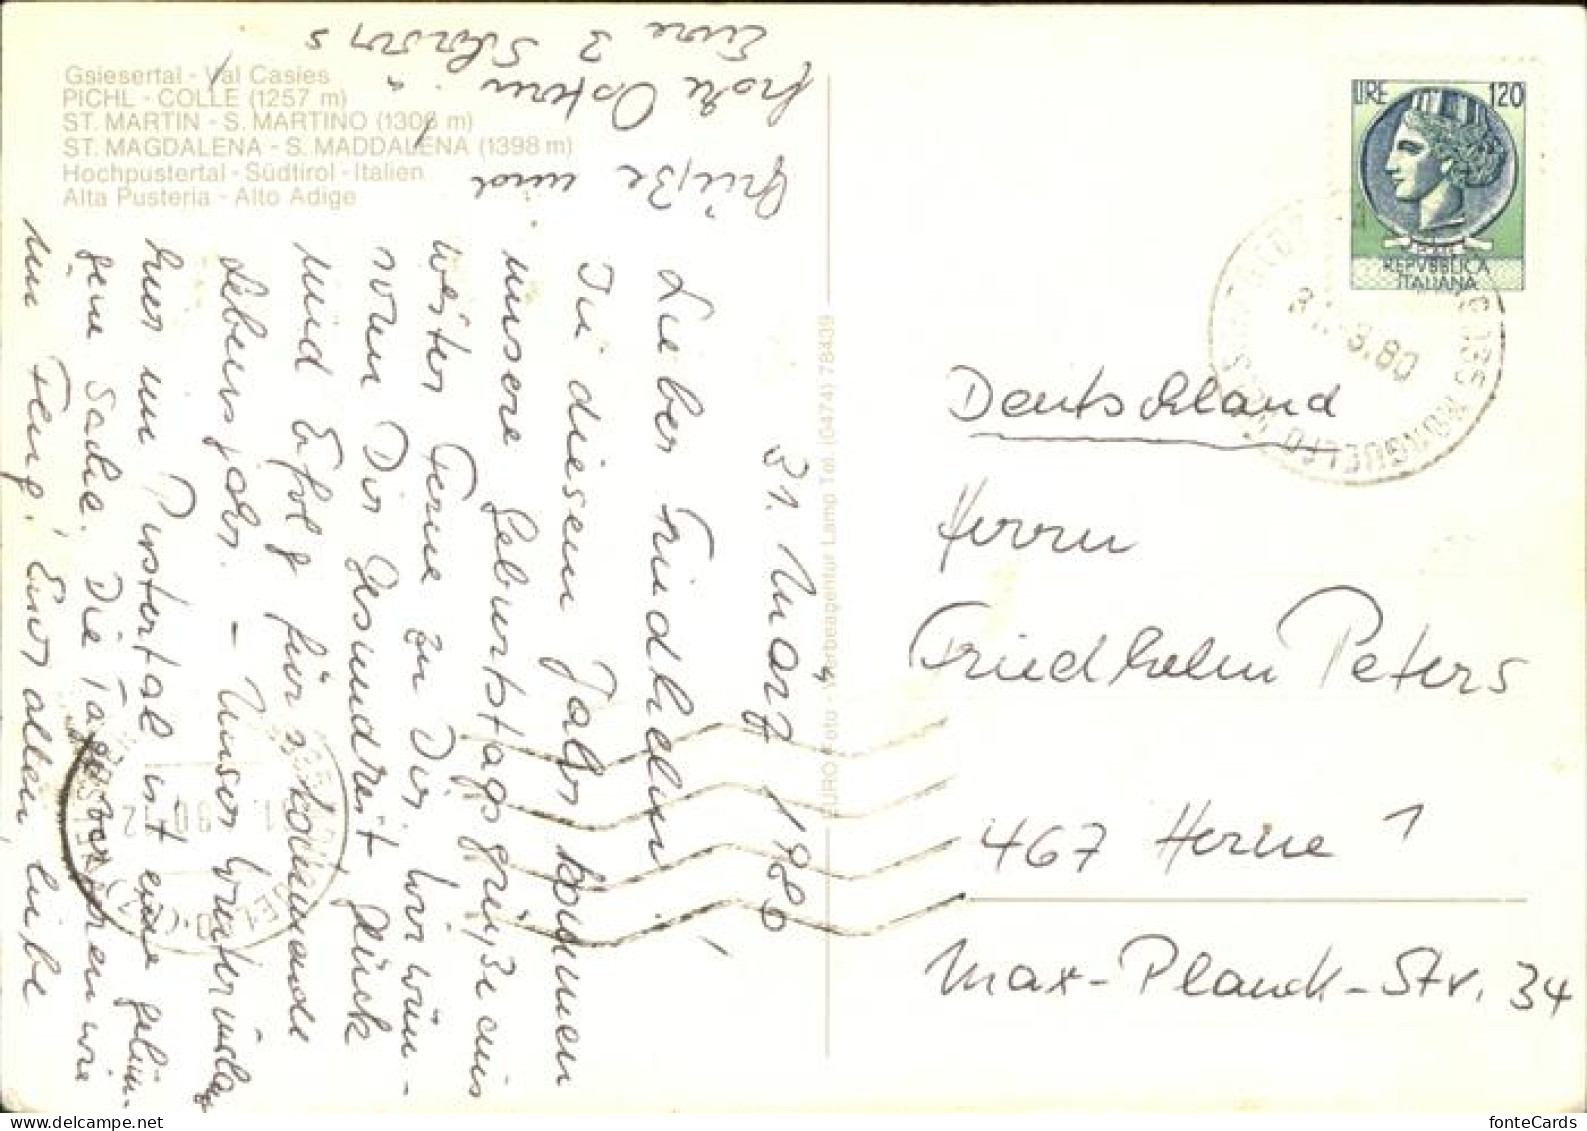 Gsiesertal - Val Casies
PICHL - COLLE (1257 m)
ST. MARTIN - S. MARTINO (1306 m)
ST. MAGDALENA - S. MADDALENA (1398 m)
Hochpustertal - Südtirol - Italien
Alta Pusteria - Alto Adige
31. März 1980
Lieber Friedhelm!
In diesem Jahr kommen
unsere Geburtstagsgrüße aus
weiter Ferne zu Dir. Wir wün-
schen Dir Gesundheit, Glück
und Erfolg für's kommende
Lebensjahr. - Unser Winterurlaub
hier im Pustertal ist eine gelun-
gene Sache. Die Tage vergehen wie
im Flug! Euch allen liebe
Grüße und
frohe Ostern
Eure 3
EURO Foto - Werbeagentur Lamp Tel. (0474) 78439
LIRE 120
REPVBBLICA
ITALIANA
MONGUELFO
Deutschland
Herrn
Friedhelm Peters
467 Herne 1
Max-Planck-Str. 34
fonteCards